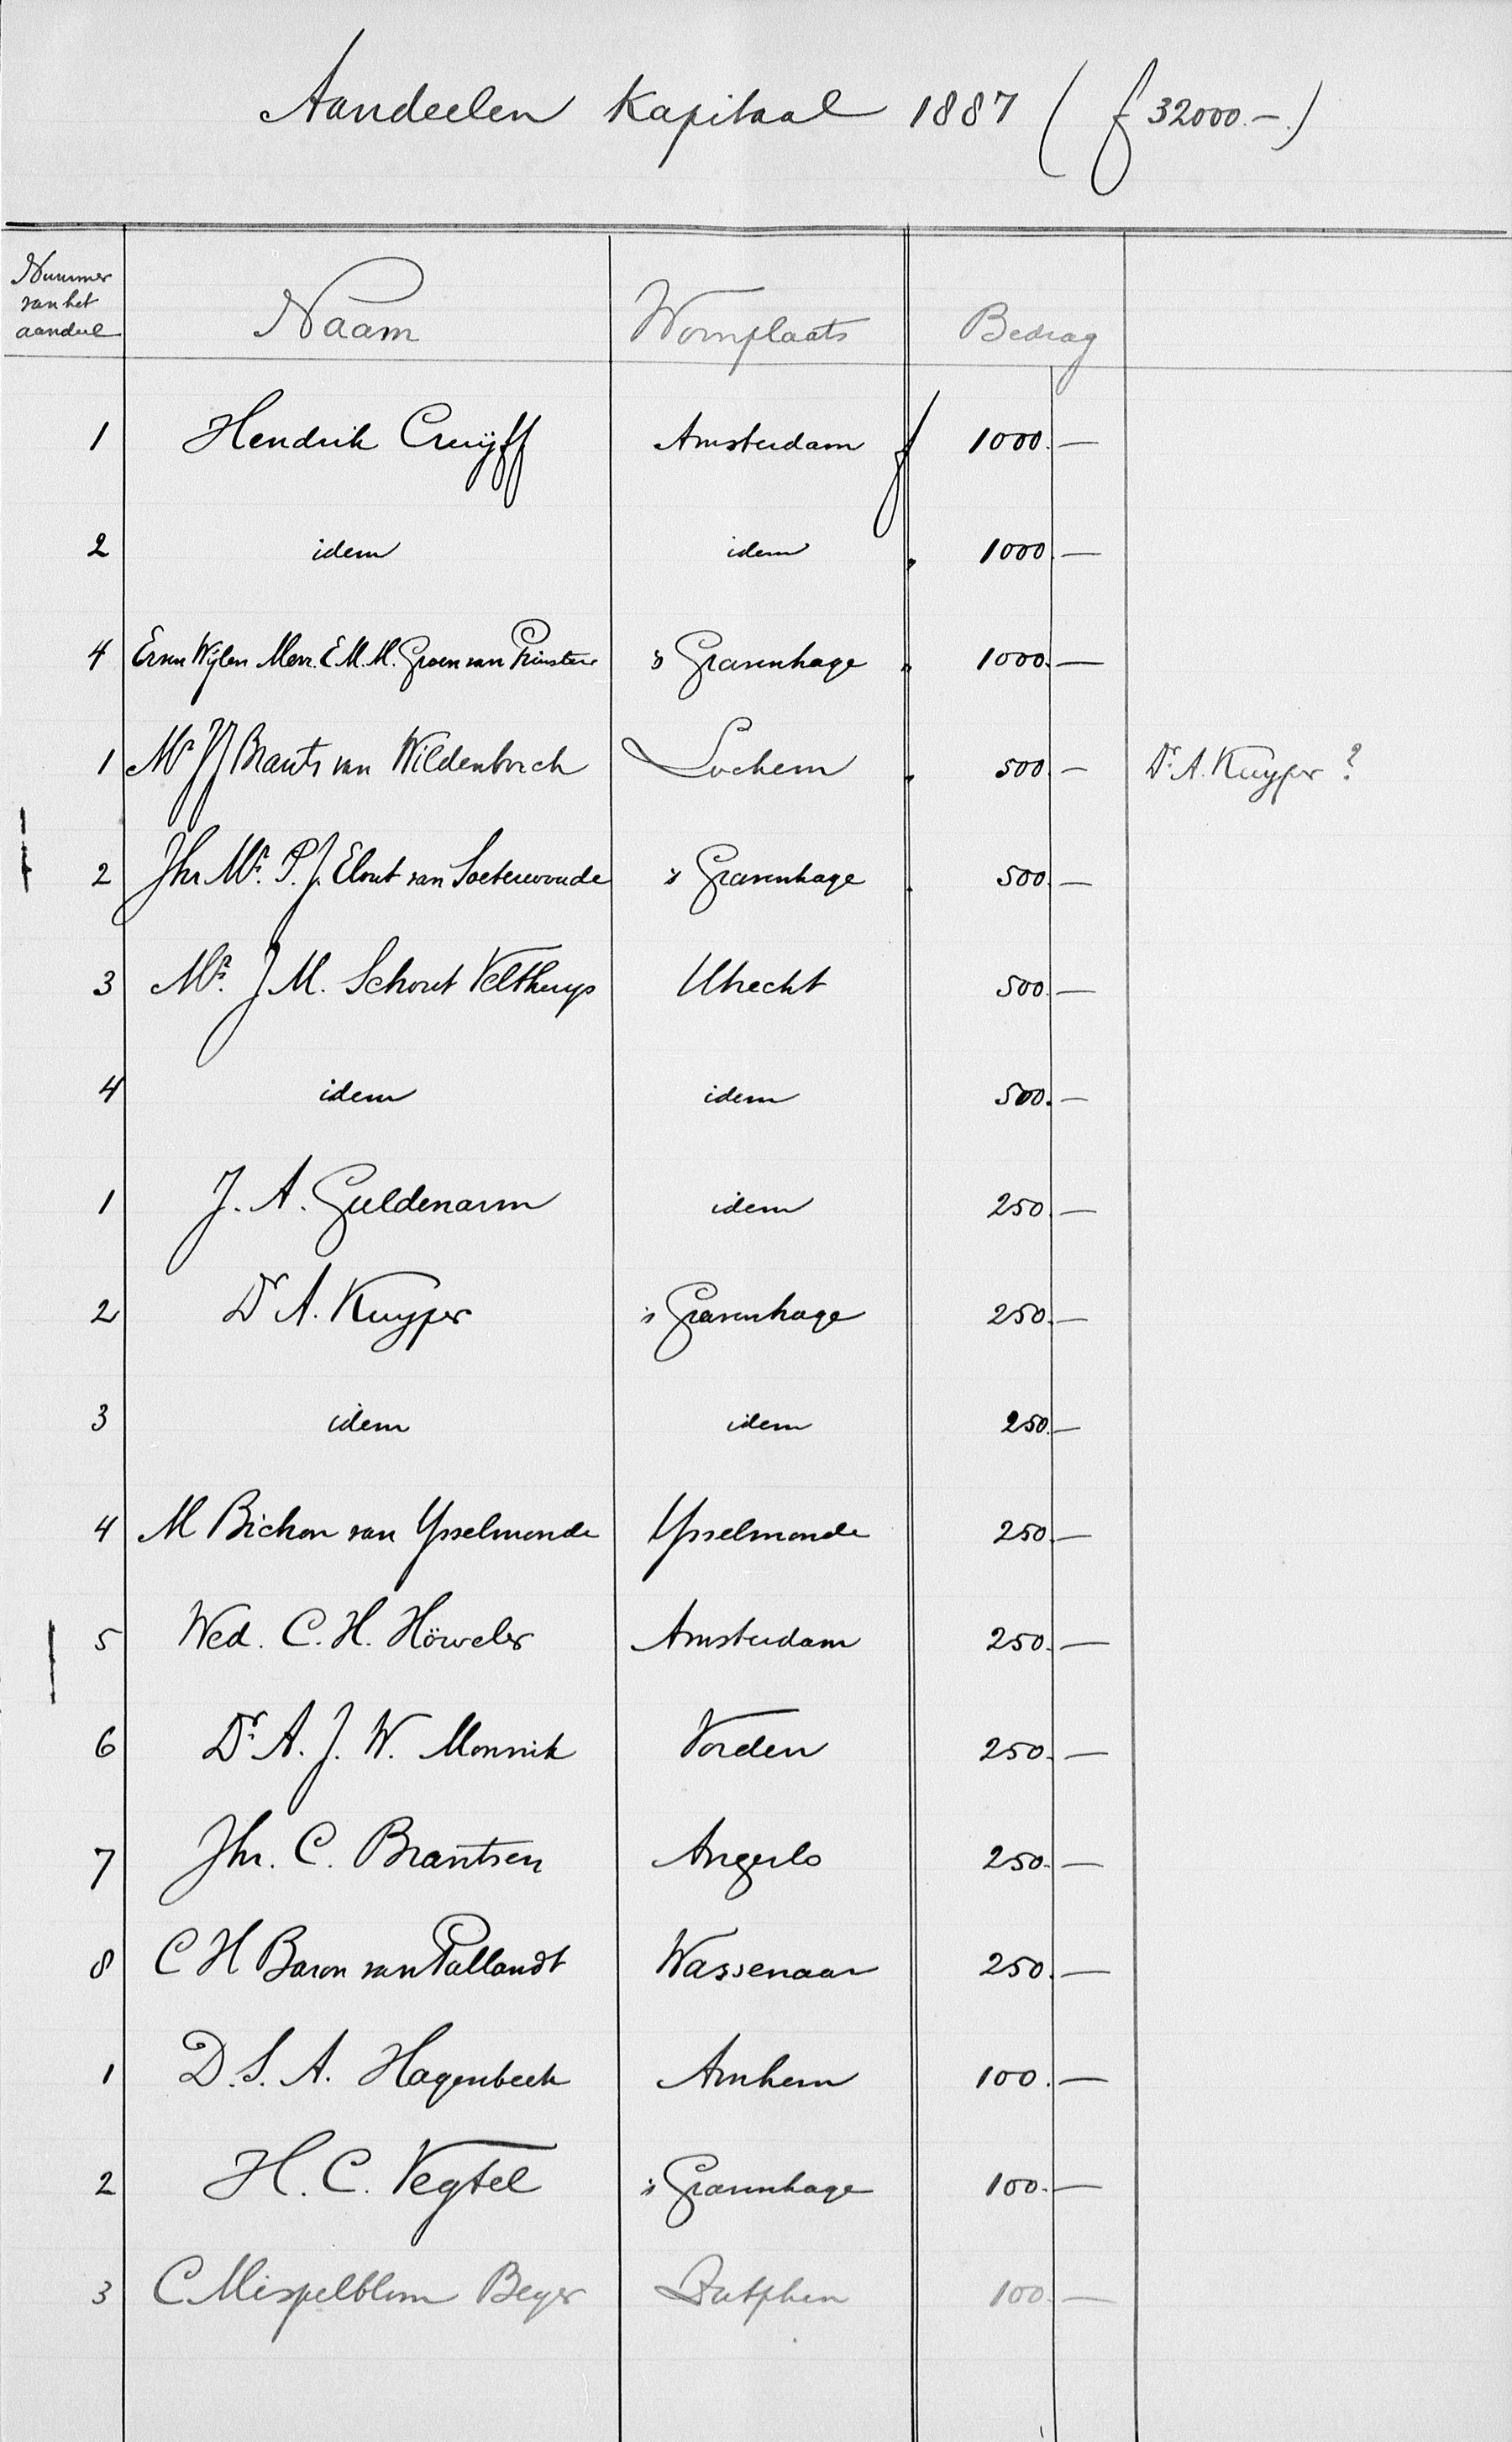 Aandeelen Kapitaal 1887 (f 32000.-)
Nummer
van het
aandeel
Naam Woonplaats Bedrag
1 Hendrik Cruÿff Amsterdam f 1000.—
2 idem idem „ 1000.—
4 Erven Wijlen Mevr. E. M. M. Groen van Prinsterer 's Gravenhage „ 1000.—
1 Mr JJ Brants van Wildenborch Lochem „ 500.— Dr. A. Kuyper ?
2 Jhr Mr. P. J. Elout van Soeterwoude 's Gravenhage „ 500.—
3 Mr. J M. Schout Velthuys Utrecht 500.—
4 idem idem 500.—
1 J. A. Guldenarm idem 250.—
2 Dr A. Kuyper 's Gravenhage 250.—
3 idem idem 250.—
4 M Bichon van Ysselmonde Ysselmonde 250.—
5 Wed. C. H. Höweler Amsterdam 250.—
6 Dr. A. J. W. Monnik Vorden 250.—
7 Jhr. C. Brantsen Angerlo 250.—
8 C H Baron van Pallandt Wassenaar 250.—
1 D. S. A. Hagenbeek Arnhem 100.—
2 H. C. Vegtel 's Gravenhage 100.—
3 C Mispelblom Beyer Zutphen 100.—